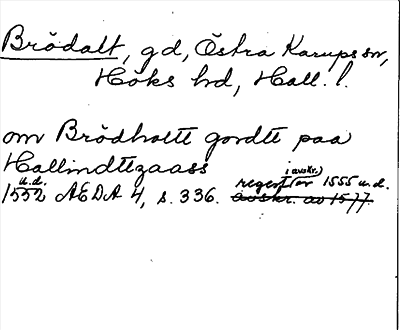 Brödalt, gd, Östra Karups sn,
Höks hd, Hall. l.
om Brödholtt gordtt paa
Hallindttzaass
u.d. i avskr.)
1552 ÆDA 4, s. 336. regest av 1555 u.d.
avskr. av 1577.